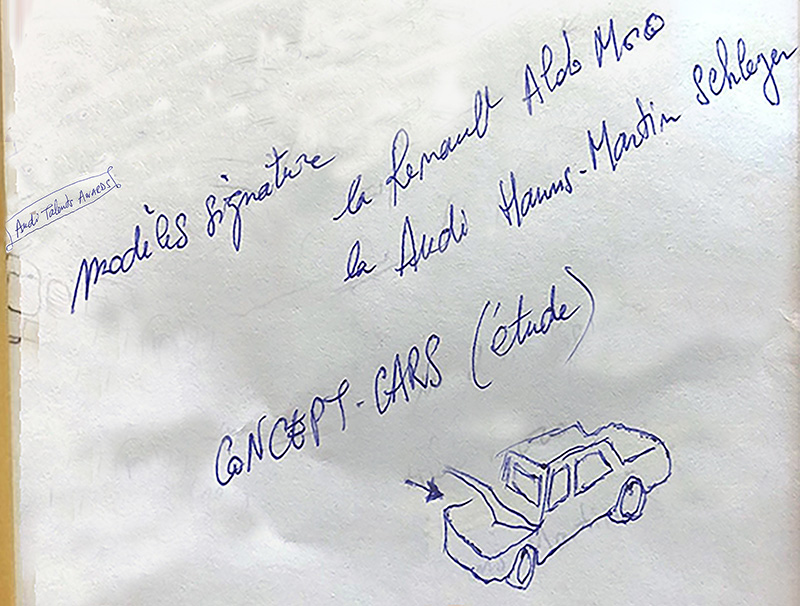 Audi Talents Awards
modèles signature
la Renault Aldo Moro
la Audi Hanns-Martin Schleyer
CONCEPT-CARS (étude)